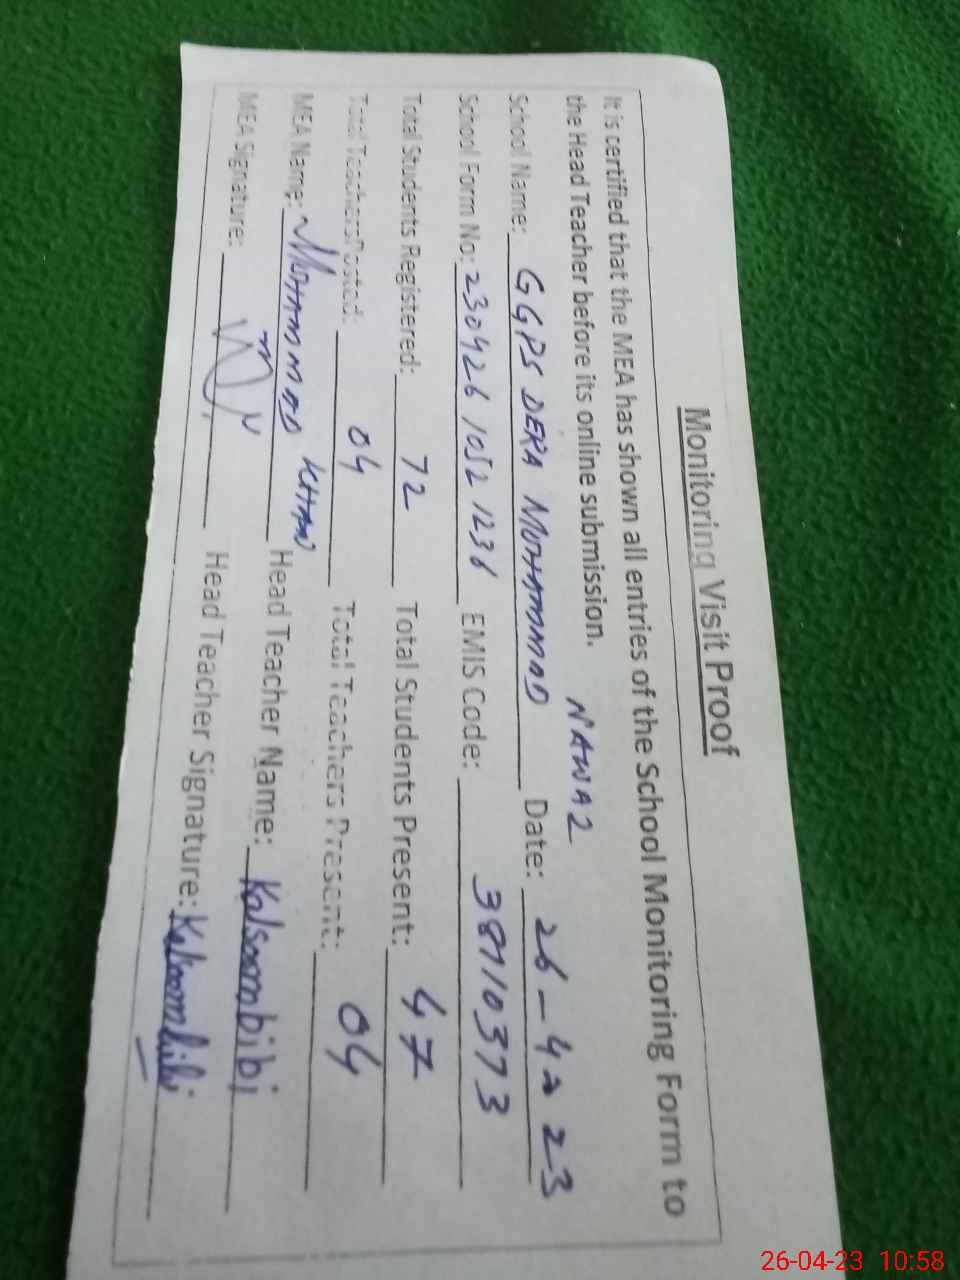 Monitoring Visit Proof
It is certified that the MEA has shown all entries of the School Monitoring Form to
the Head Teacher before its online submission.
NAWAZ
School Name: GGPS DERA MOHAMMAD Date: 26-4-23
School Form No: 230426 1052 1236 EMIS Code: 38710373
Total Students Registered: 72 Total Students Present: 47
Total Teachers Posted: 04 Total Teachers Present: 04
MEA Name: MOHAMMAD KHAN Head Teacher Name: Kalsoom bibi
MEA Signature: Head Teacher Signature: Kalsoom bibi
26-04-23 10:58